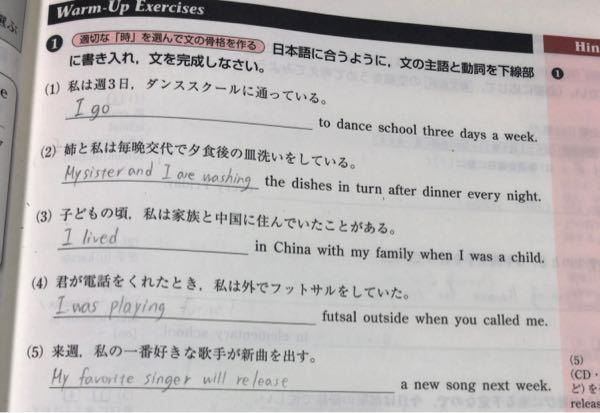 Warm-Up Exercises
選ぶ
❶ 適切な「時」を選んで文の骨格を作る 日本語に合うように，文の主語と動詞を下線部
に書き入れ，文を完成しなさい。
(1) 私は週3日，ダンススクールに通っている。
I go to dance school three days a week.
(2) 姉と私は毎晩交代で夕食後の皿洗いをしている。
My sister and I are washing the dishes in turn after dinner every night.
(3) 子どもの頃，私は家族と中国に住んでいたことがある。
I lived in China with my family when I was a child.
(4) 君が電話をくれたとき，私は外でフットサルをしていた。
I was playing futsal outside when you called me.
(5) 来週，私の一番好きな歌手が新曲を出す。
My favorite singer will release a new song next week.
Hin
❶
(5)
(CD・
ど）を
releas